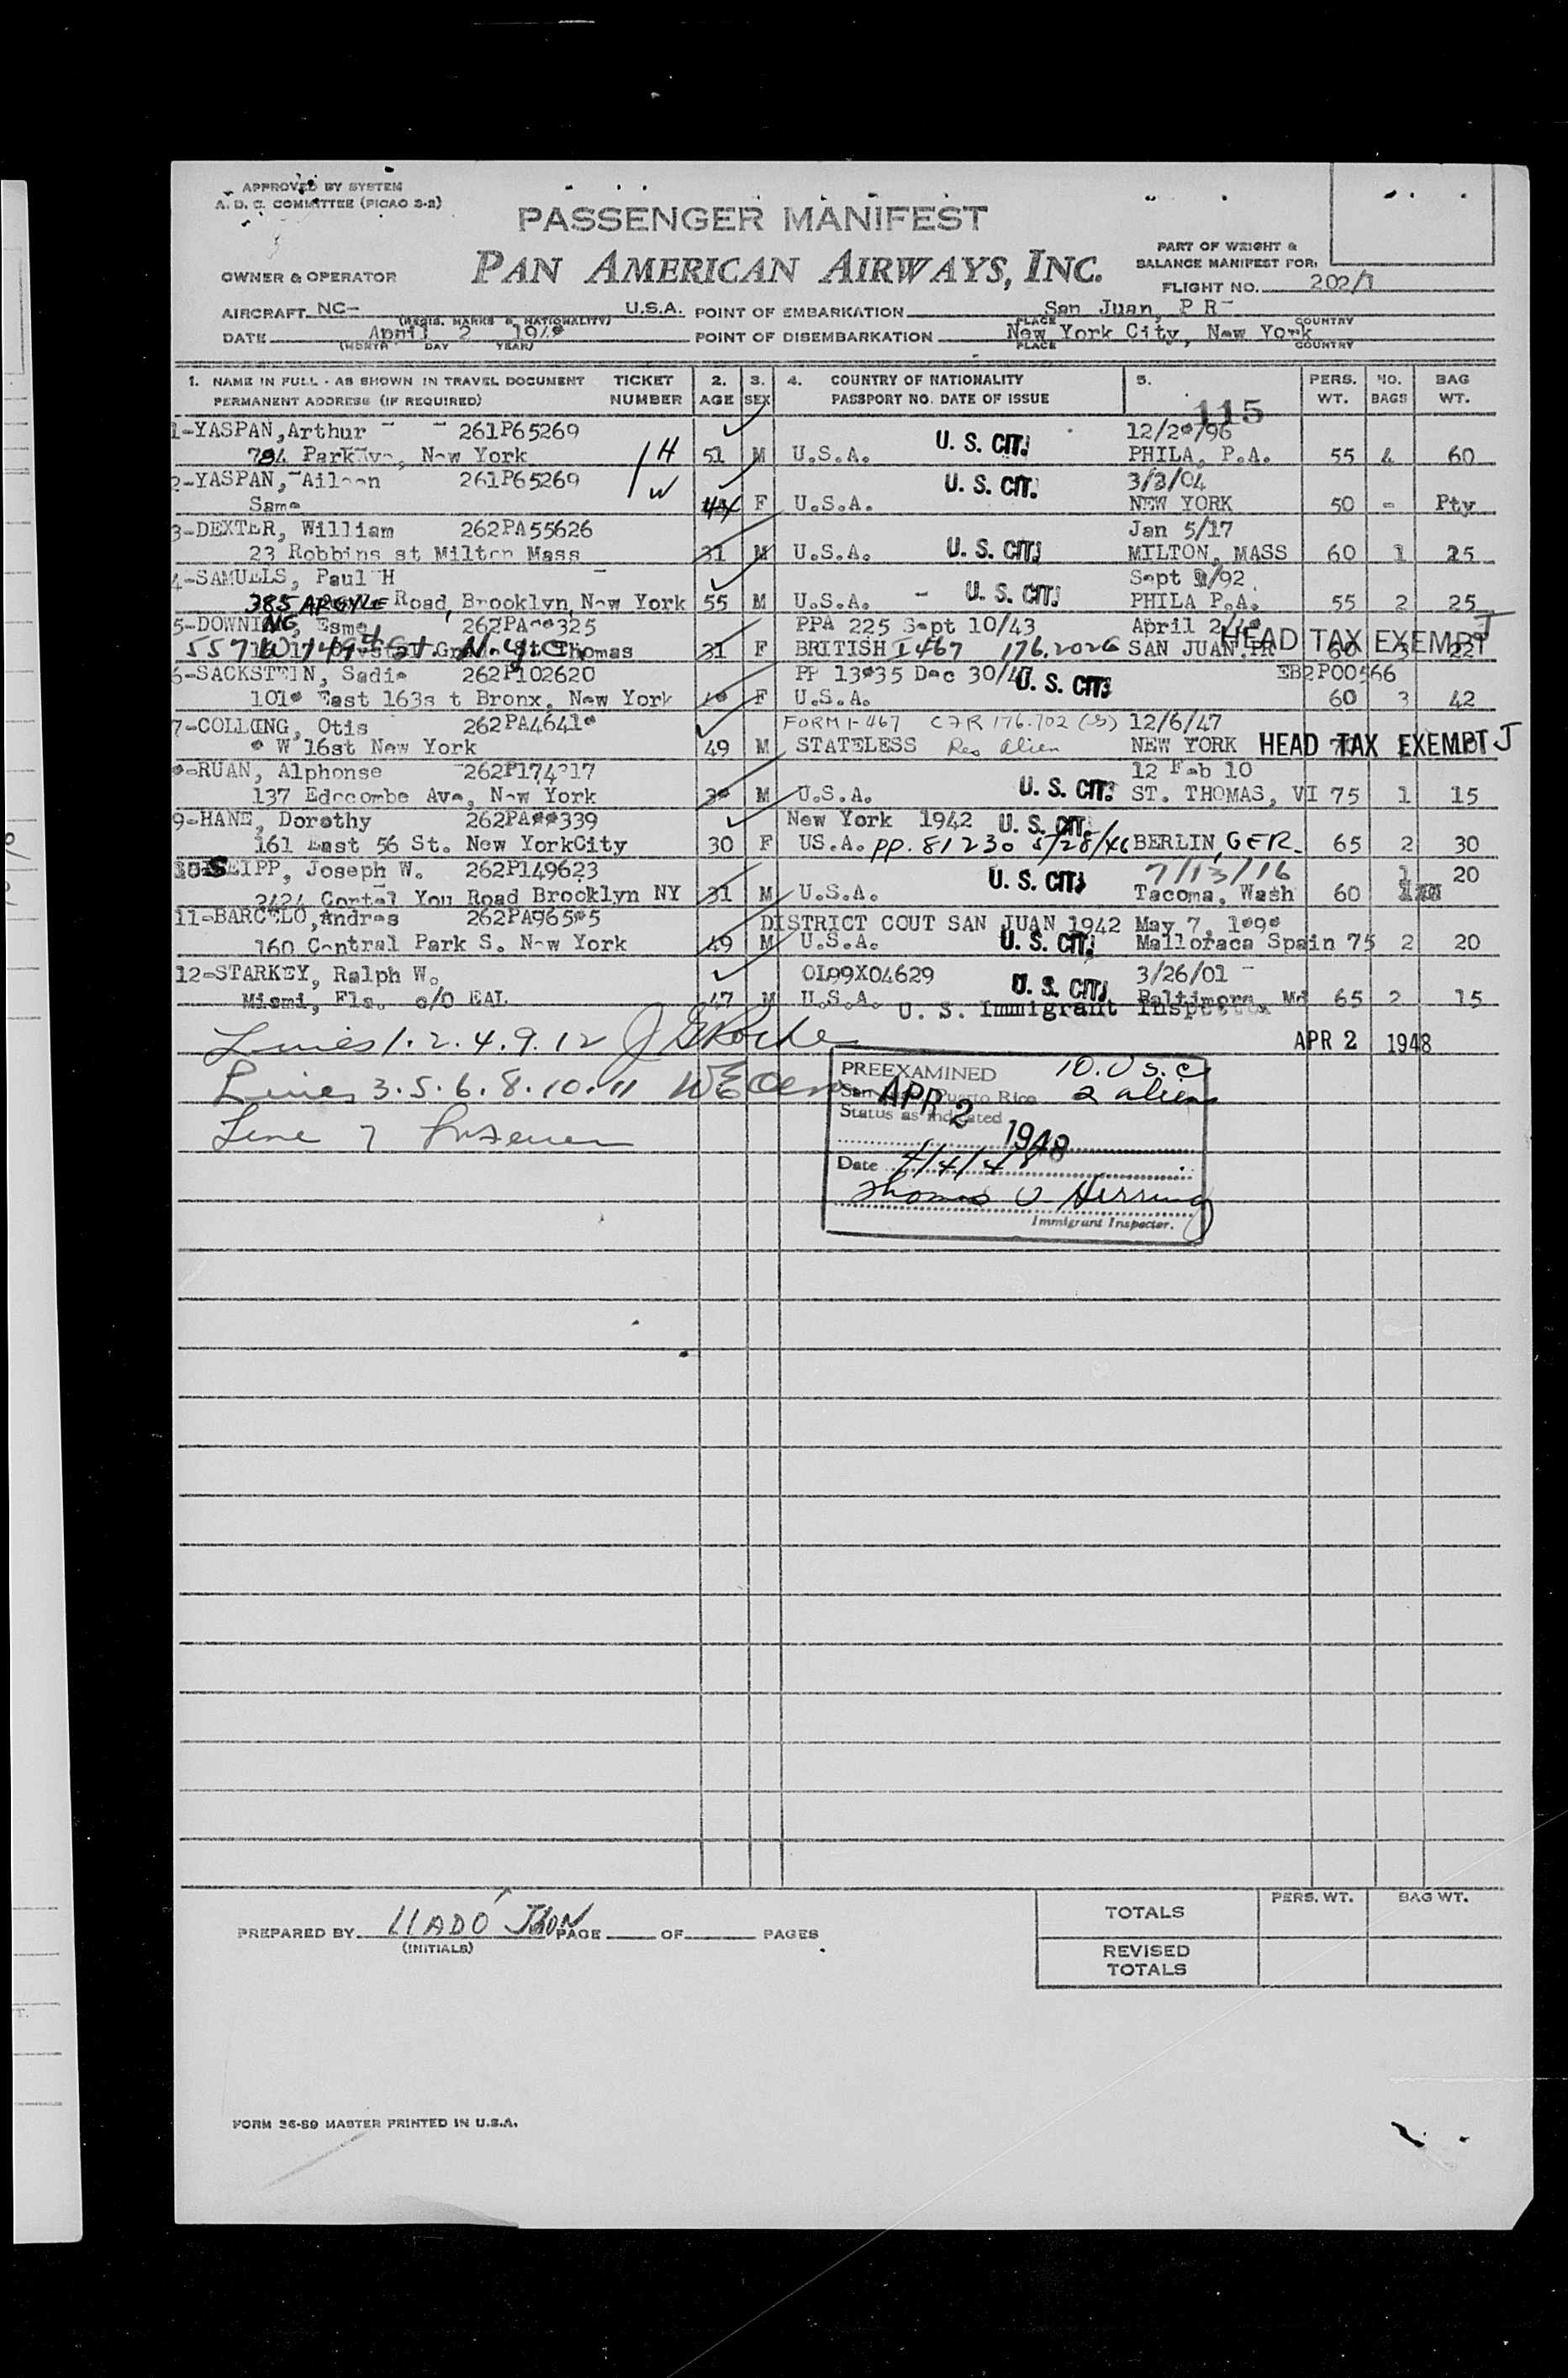 APPROVED BY SYSTEM
A. D. C. COMMITTEE (PICAO 3-2)
PASSENGER MANIFEST
PAN AMERICAN AIRWAYS, INC.
OWNER & OPERATOR
PART OF WEIGHT &
BALANCE MANIFEST FOR:
FLIGHT NO. 202/1
AIRCRAFT NC- U.S.A. POINT OF EMBARKATION San Juan, P R
(REGIS. MARKS & NATIONALITY) PLACE COUNTRY
DATE April 2 POINT OF DISEMBARKATION New York City, New York
(MONTH DAY YEAR) PLACE COUNTRY
1. NAME IN FULL - AS SHOWN IN TRAVEL DOCUMENT TICKET 2. 3. 4. COUNTRY OF NATIONALITY 5. PERS. NO. BAG
PERMANENT ADDRESS (IF REQUIRED) NUMBER AGE SEX PASSPORT NO. DATE OF ISSUE WT. BAGS WT.
115
1-YASPAN, Arthur 261P65269 U. S. CIT.
Park Ave, New York H 51 M U.S.A. PHILA, P.A. 55 4 60
2-YASPAN, Aileen 261P65269 W U. S. CIT. 3/3/04
Same 44 F U.S.A. NEW YORK 50 - Pty
3-DEXTER, William 262PA55626 Jan 5/17
23 Robbins st Milton Mass 31 M U.S.A. U. S. CIT. MILTON, MASS 60 1 25
4-SAMUELS, Paul H U. S. CIT. Sept /92
385 ARGYLE Road, Brooklyn, New York 55 M U.S.A. PHILA P.A. 55 2 25
5-DOWNING, Esme PPA 225 Sept 10/43 April HEAD TAX EXEMPT J
557 W 149 St. N.Y.C. St Thomas 31 F BRITISH I 467 176.202G SAN JUAN PR 60 3 22
6-SACKSTEIN, Sadie 262P102620 Dec 30/47 U. S. CIT. EB2P00566
East 163s t Bronx, New York F U.S.A. 60 3 42
7-COLLING, Otis FORM I-467 CFR 176.702 (S) 12/6/47
W 16st New York 49 M STATELESS Res Alien NEW YORK HEAD TAX EXEMPT J
RUAN, Alphonse 12 Feb 10
137 Edgcombe Ave, New York M U.S.A. U. S. CIT. ST. THOMAS, VI 75 1 15
9-HANE, Dorothy New York 1942 U. S. CIT.
161 East 56 St. New YorkCity 30 F US.A. PP. 81230 5/28/46 BERLIN, GER. 65 2 30
10-SEIPP, Joseph W. 262P149623 U. S. CIT. 7/13/16 1 20
2424 Cortel You Road Brooklyn NY 31 M U.S.A. Tacoma, Wash 60
11-BARCELO, Andres DISTRICT COUT SAN JUAN 1942 May 7,
160 Central Park S. New York 49 M U.S.A. U. S. CIT. Malloraca Spain 75 2 20
12-STARKEY, Ralph W. OL99X04629 U. S. CIT. 3/26/01
Miami, Fla. c/O EAL 47 M U.S.A. Baltimore Md 65 2 15
U. S. Immigrant Inspector
Lines 1. 2. 4. 9. 12 APR 2 1948
Lines 3. 5. 6. 8. 10. 11
Line 7
PREEXAMINED 10. U S. C
San Puerto Rico 2 aliens
APR 2 1948
Status as indicated
Date 4/4/48
Thomas V. Herring
Immigrant Inspector.
PREPARED BY LLADO PAGE OF PAGES
(INITIALS)
PERS. WT. BAG WT.
TOTALS
REVISED
TOTALS
FORM 36-89 MASTER PRINTED IN U.S.A.